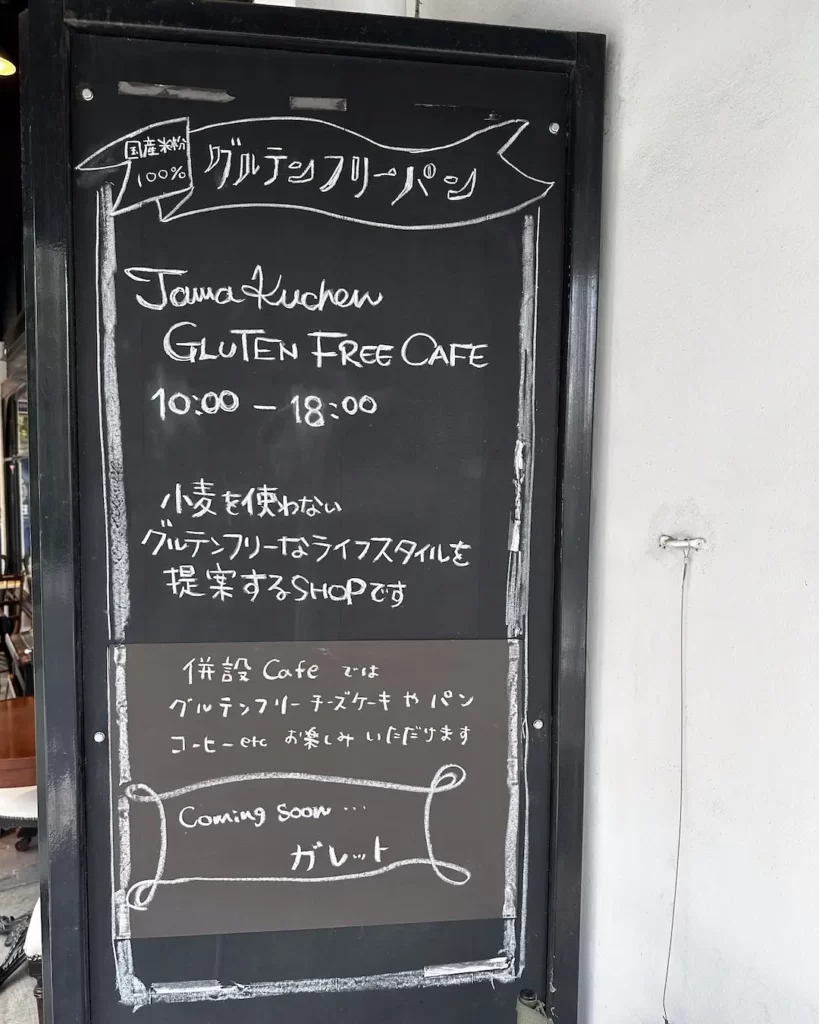 国産米粉
100%
グルテンフリーパン
Tama Kuchen
GLUTEN FREE CAFE
10:00 - 18:00
小麦を使わない
グルテンフリーなライフスタイルを
提案するSHOPです
併設 Cafe では
グルテンフリー チーズケーキ や パン
コーヒー etc お楽しみ いただけます
Coming Soon ...
ガレット